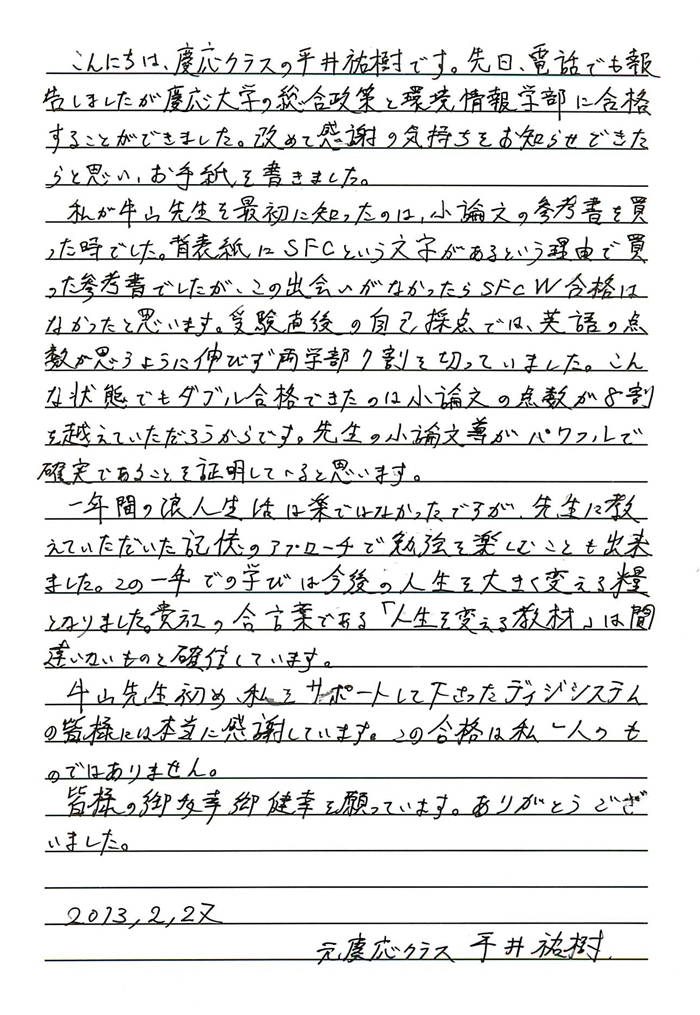 こんにちは、慶応クラスの平井祐樹です。先日、電話でも報
告しましたが慶応大学の総合政策と環境情報学部に合格
することができました。改めて感謝の気持ちをお知らせできた
らと思い、お手紙を書きました。
私が牛山先生を最初に知ったのは、小論文の参考書を買
った時でした。背表紙にSFCという文字があるという理由で買
った参考書でしたが、この出会いがなかったらSFCW合格は
なかったと思います。受験直後の自己採点では、英語の点
数が思うように伸びず両学部7割を切っていました。こん
な状態でもダブル合格できたのは小論文の点数が8割
を越えていただろうからです。先生の小論文導がパワフルで
確実であることを証明していると思います。
一年間の浪人生活は楽ではなかったですが、先生に教
えていただいた記憶のアプローチで勉強を楽しむことも出来
ました。この一年での学びは今後の人生を大きく変える糧
となりました。貴社の合言葉である「人生を変える教材」は間
違いないものと確信しています。
牛山先生初め、私をサポートして下さったディジシステム
の皆様には本当に感謝しています。この合格は私一人のも
のではありません。
皆様の御多幸御健幸を願っています。ありがとうござ
いました。
2013,2,27
元慶応クラス 平井祐樹.